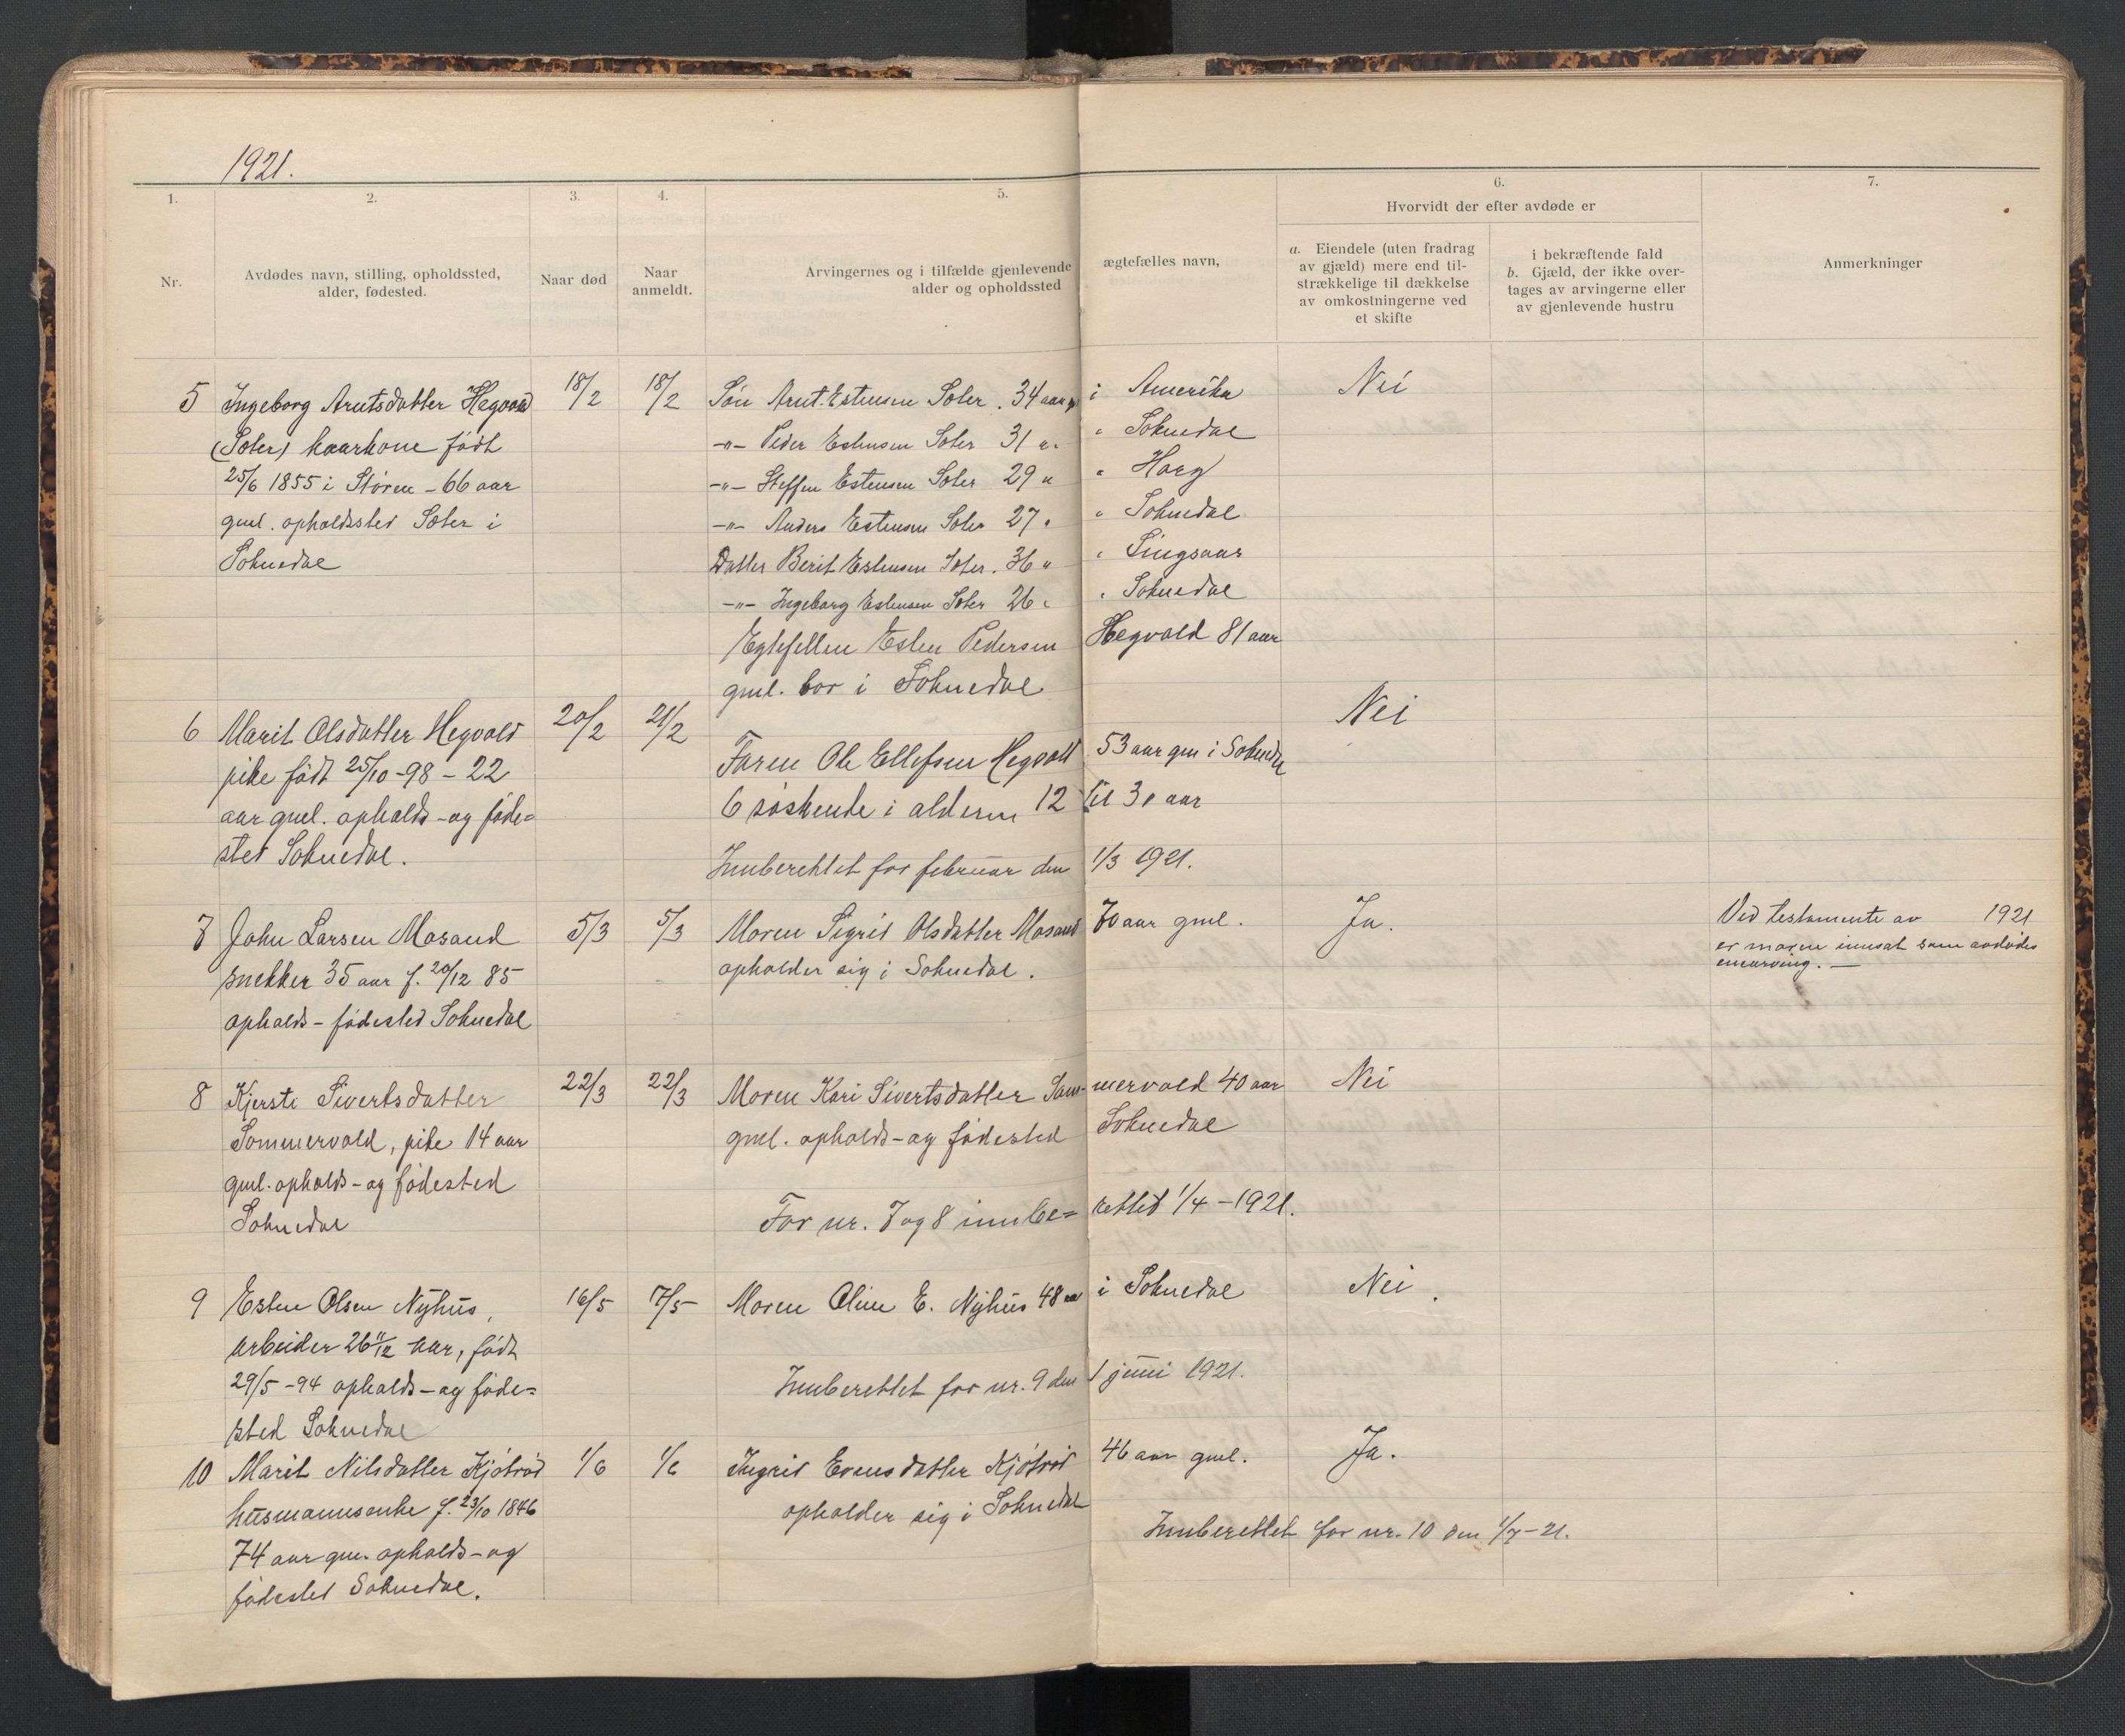 1921.
1. 2. 3. 4. 5. 6. 7.
Nr.
Avdødes navn, stilling, opholdssted,
alder, fødested.
Naar død
Naar
anmeldt.
Arvingernes og i tilfælde gjenlevende ægtefælles navn,
alder og opholdssted
Hvorvidt der efter avdøde er
a. Eiendele (uten fradrag
av gjæld) mere end til-
strækkelige til dækkelse
av omkostningerne ved
et skifte
i bekræftende fald
b. Gjæld, der ikke over-
tages av arvingerne eller
av gjenlevende hustru
Anmerkninger
5 Ingeborg Arntsdatter Hegvold 18/2 18/2 Søn Arnt Estensen Soter. 34 aar i Amerika Nei
(Soter) kaarkone født -"- Peder Estensen Soter 31 " " Soknedal
25/6 1855 i Støren - 66 aar -"- Steffen Estensen Soter 29 " " Horg
gml. opholdssted Soter i -"- Anders Estensen Soter 27 " " Soknedal
Soknedal Datter Berit Estensen Soter. 36 " " Singsaas
-"- Ingeborg Estensen Soter 26 " " Soknedal
Egtefellen Esten Pedersen Hegvold 81 aar
gml. bor i Soknedal
6 Marit Olsdatter Hegvold 20/2 21/2 Nei
pike født 25/10-98 - 22 Faren Ole Ellefsen Hegvold 53 aar gm i Soknedal
aar gml. opholds- og føde= 6 søskende i alderen 12 til 30 aar
sted Soknedal.
Innberettet for februar den 1/3 1921.
7 John Larsen Mosand 5/3 5/3 Moren Sigrid Olsdatter Mosand 70 aar gml. Ja. Ved testamente av 1921
snekker 35 aar f. 20/12 85 opholder sig i Soknedal. er moren innsat som avdødes
enearving. —
opholds- fødested Soknedal
8 Kjersti Sivertsdatter 22/3 22/3 Moren Kari Sivertsdatter Som- mervold 40 aar Nei
Sommervold, pike 14 aar gml. opholds- og fødested Soknedal
gml. opholds- og fødested
Soknedal For nr. 7 og 8 innbe= rettet 1/4 - 1921.
9 Esten Olsen Nyhus, 16/5 7/5 Moren Oline E. Nyhus 48 aar i Soknedal Nei.
arbeider 26 11/12 aar, født
29/5 -94 opholds- og føde= Innberettet for nr. 9 den 1 juni 1921.
sted Soknedal
10 Marit Nilsdatter Kjøtrød 1/6 1/6 Ingrid Evensdatter Kjøtrød 46 aar gml. Ja.
husmannsenke f. 23/10 1846 opholder sig i Soknedal
74 aar gm. opholds- og Innberettet for nr. 10 den 1/7-21.
fødested Soknedal.